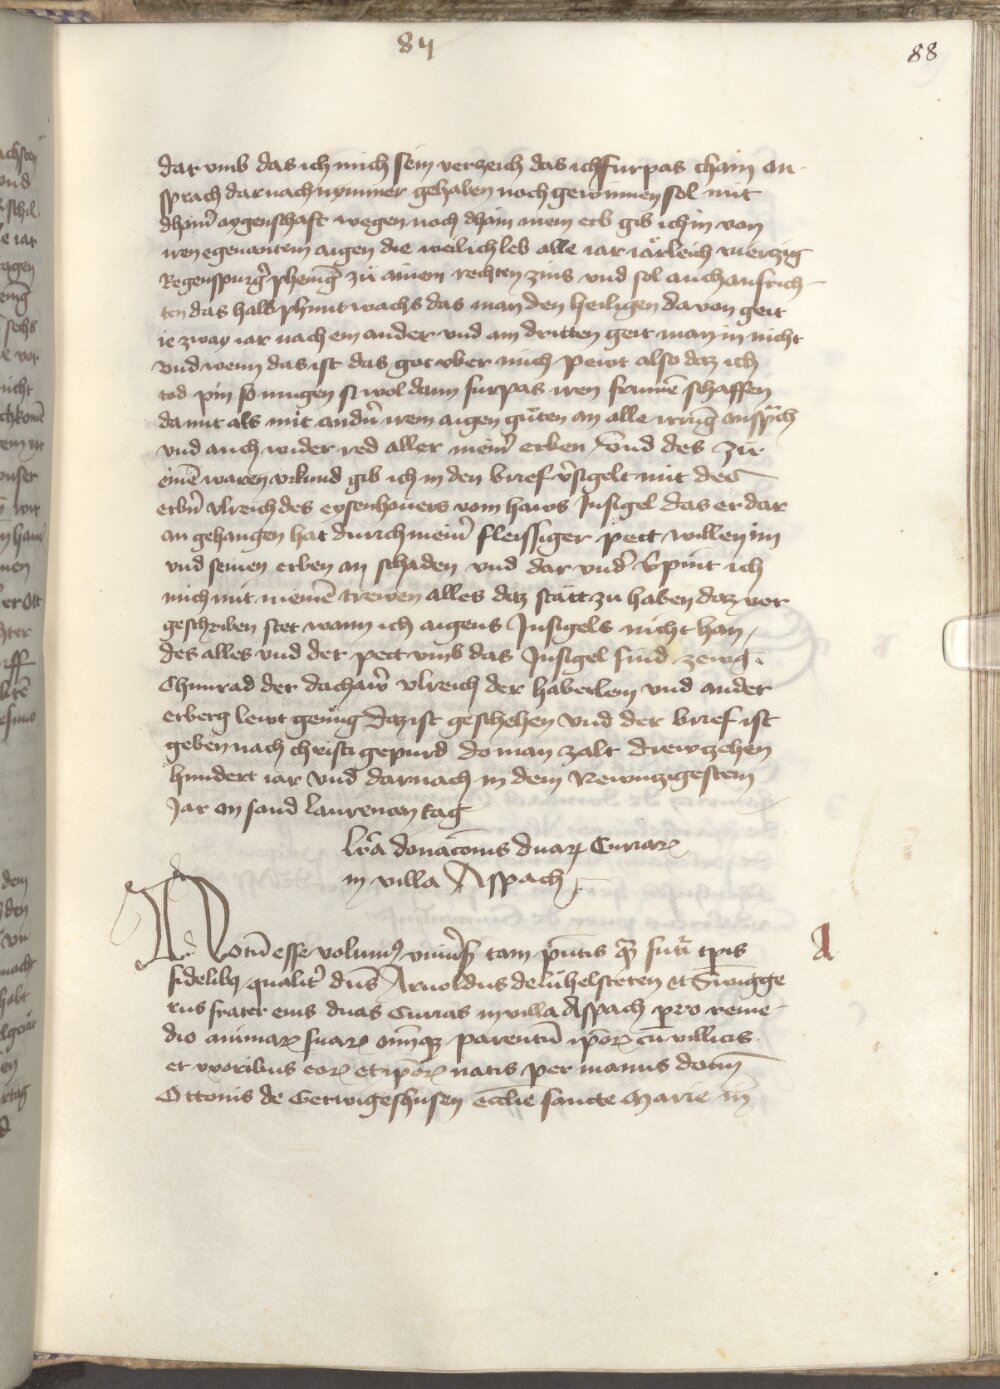 84
88
dar vmb das ich mich sein verzeich das ich furpas chain an
sprach dar nach nymmer gehaben noch gewinnen sol mit
dhain̄ aygenschaft wegen noch dhain mein erb gib ich in von
iren egenantem aigen die weil ich leb alle iar iärleich vierzig
Regenspurg̉ phenīg zu ainem rechten zins vnd sol auch aufrich
ten das halb phunt wachs das man den heiligen davon geit
ie zway iar nach ein ander vnd am dritten geit man in nicht
vnd wenn das ist das got vber mich pewt also daz ich
tod pin so mugen si wol dann furpas iren frumē schaffen
da mit als mit andn̉ irem aigen guten an alle irrūg anspͣch
vnd auch wider red aller mein̉ erben / vnd des zu
einē waren vrkund gib ich in den brief v̉sigelt mit des
erbn̉ vlreich des eysenhouers vom haws Insigel das er dar
an gehangen hat durich mein̉ fleissiger pett willen im
vnd seinen erben an schaden vnd dar vnd̉ v̉pint ich
mich mit meinē trewen alles daz stätt zu haben daz vor
geschriben stet wann ich aigens Insigels nicht han /
des alles vnd der pett vmb das Insigel sind zewg
Chunrad der dachaw̉ vlreich der haberlein vnd ander
erberg lewt genug Daz ist geschehen vnd der brief ist
geben nach christi gepurd do man zalt drewzehen
hundert iar vnd darnach in dem Newntzigestem
Jar an sand laurencen tag
lr̄a donacōnis duaꝝ Curiaꝝ
in villa Aspach
Notū esse volumꝰ vniủs̄ tam p̄ntis qͣ futͥ tp̄is
fidelibꝰ qualit̉ dūs Arnoldus de luͦhelsteten et Swigge
rus frater eius duas Curias in villa Aspach pro reme
dio animaꝝ suaꝝ om̄īqꝫ parentū ip̄oꝝ cū villicis
et vxoribus eoꝝ et ip̄oꝝ natis per manus domī
Ottonis de Getwigeshusen eccl̄ie sancte Marie in